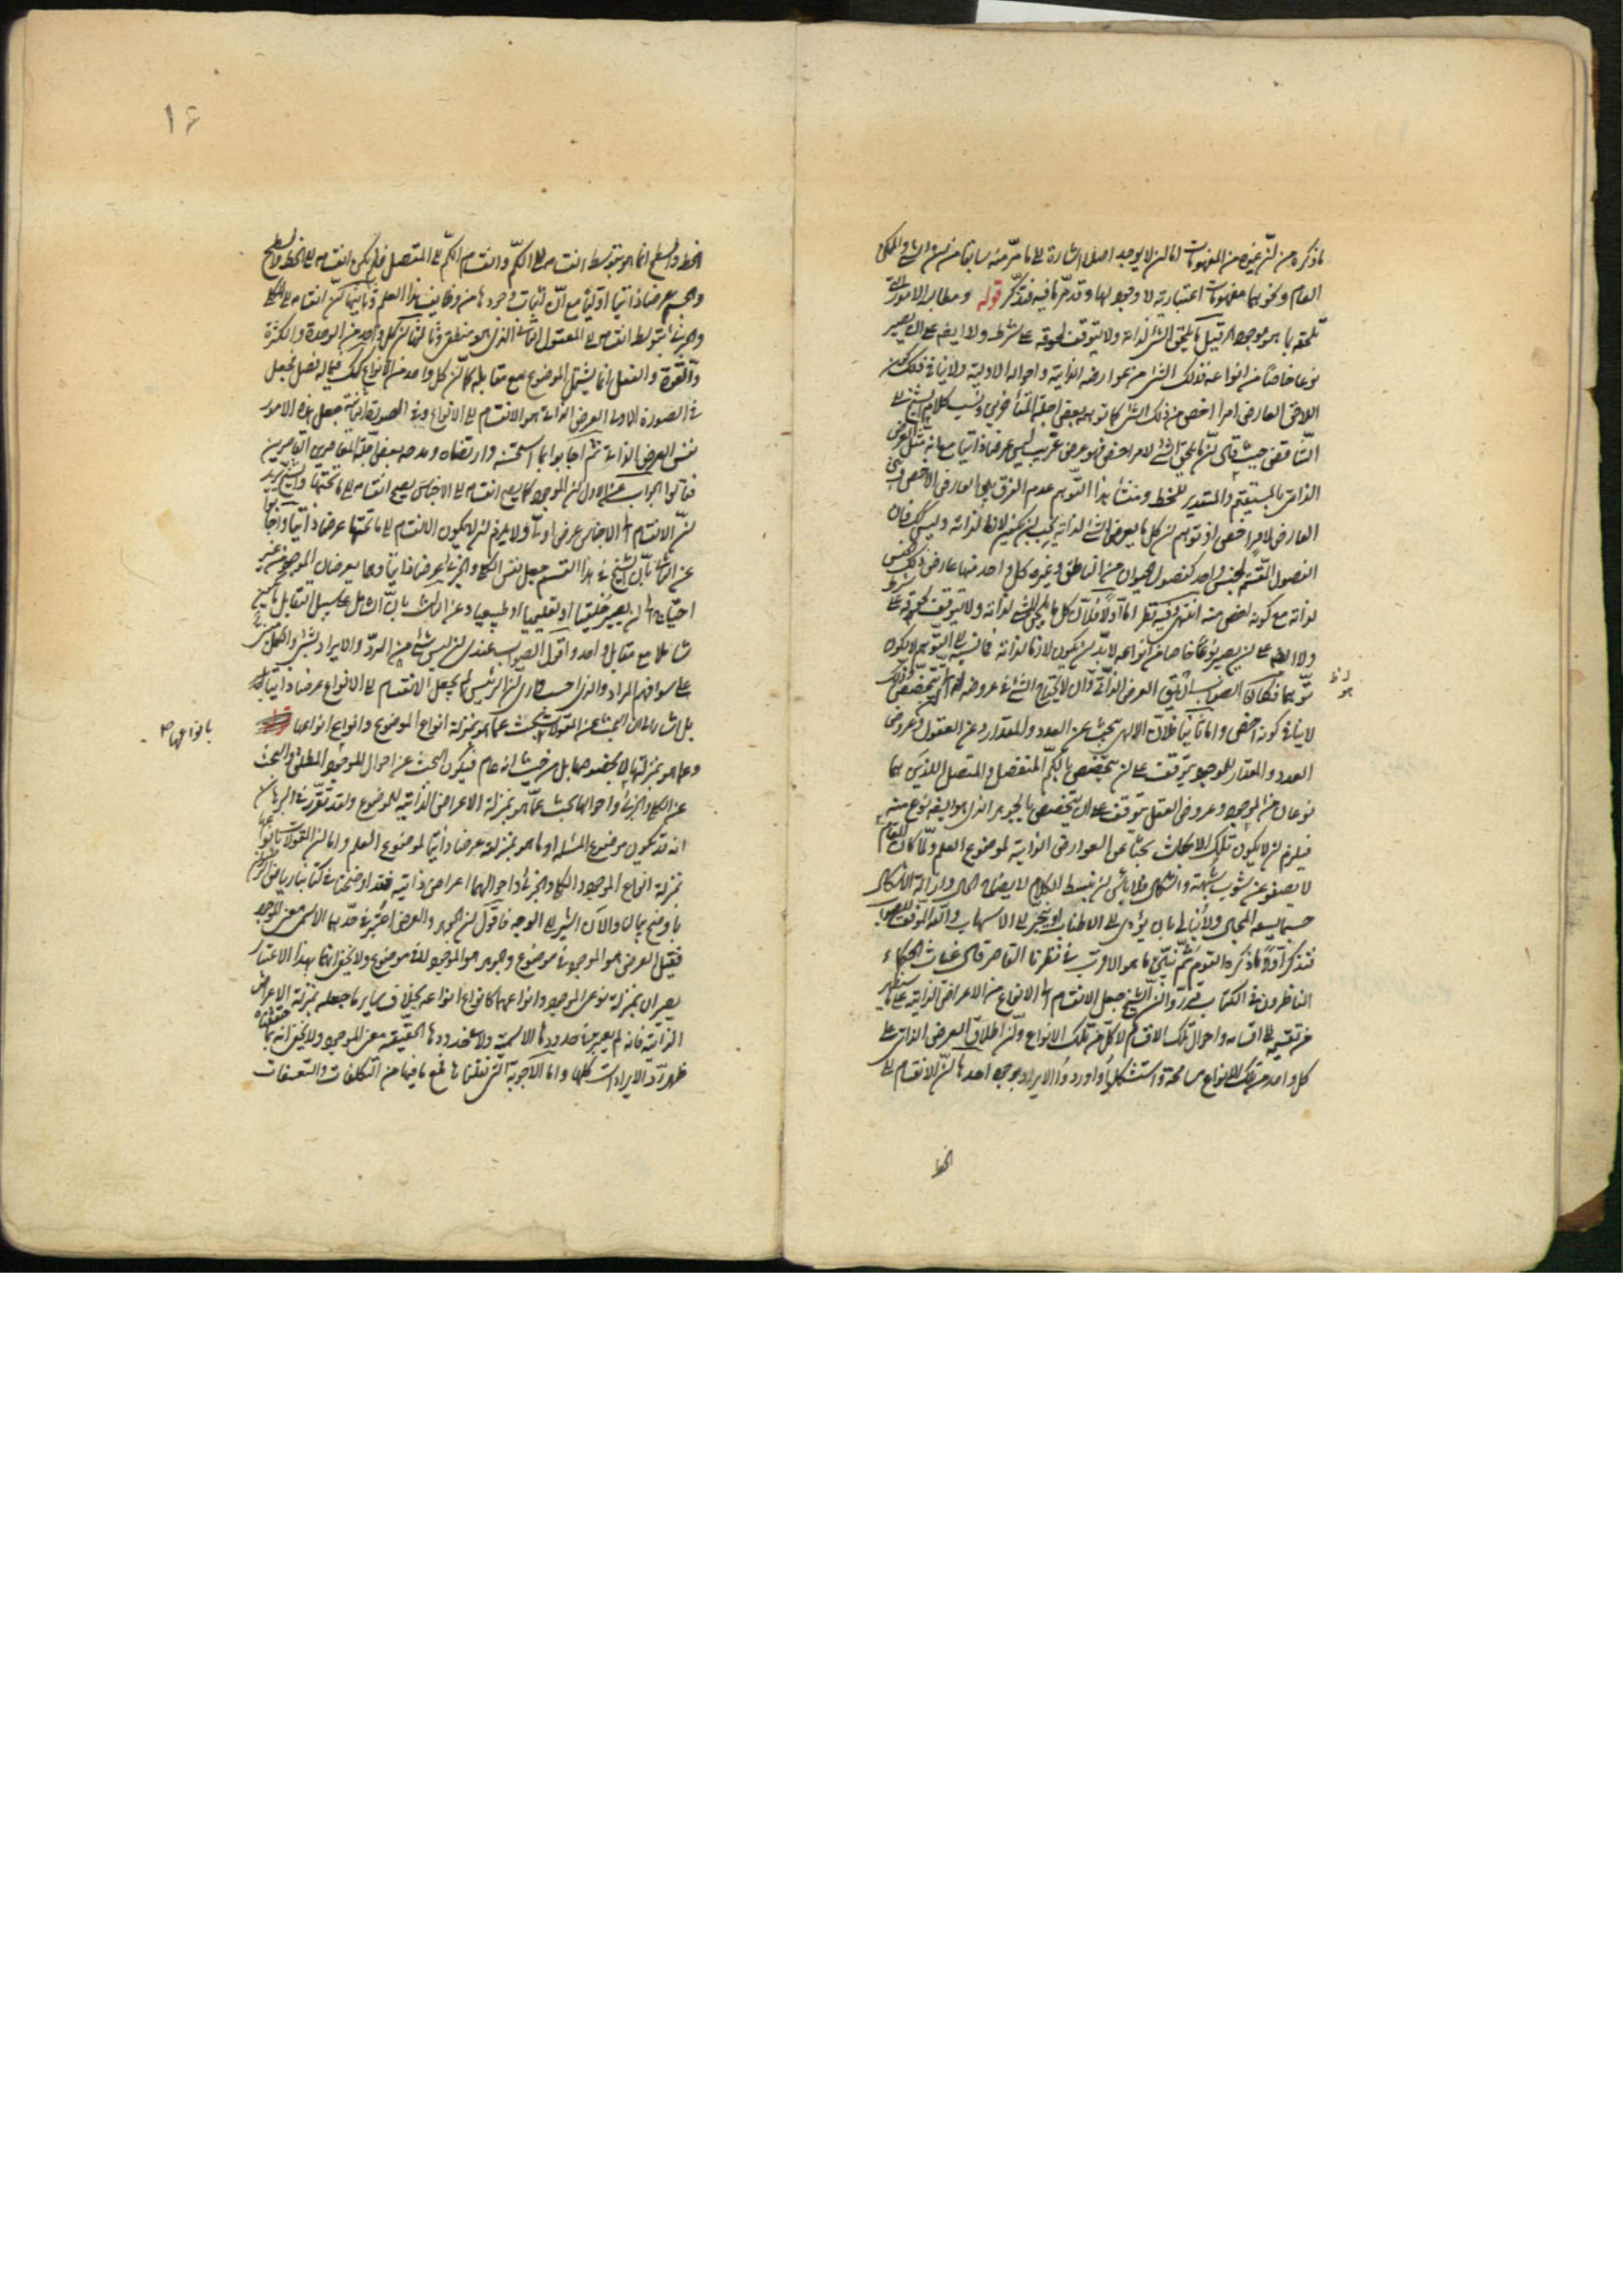 ما ذكره من انّ غيره من المفهومات اما ان لا يوجد اصلا اشارة الى ما مرّ منه سابقا من ان الشئ والممكن
العام ونحوهما مفهومات اعتبارية لا وجود لها وقد مرّ ما فيه فتذكّر قوله ومطالبه الامور التى
تلحقه بما هو موجود قيل ما يلحق الشئ لذاته ولا يتوقف لحوقه على شرط ولا ايضا على ان يصير
نوعا خاصا من انواعه فذلك الشئ من عوارضه الذاتية واحواله الاولية ولا ينافى ذلك كون
اللاحق العارض امرا اخص من ذلك الشئ كما توهمه بعض اجلة المتأخرين ونسب كلام الشيخ الى
التناقض حيث قال انّ ما يلحق الشئ لامر اخص فهو عرض غريب ليس عرضا ذاتيا مع انه مثّل العرض
الذاتى بالمستقيم والمستدير للخط ومنشأ هذا التوهم عدم الفرق بين العارض الاخص وبين
العارض لامر اخص اذ توهم ان كل ما يعرض الشئ لذاته يجب ان يكون لازما لذاته وليس كك فان
الفصول المقسمة لجنس واحد كفصول الحيوان من الناطق وغيره كل واحد منها عارض لذلك الجنس
لذاته مع كونه اخص منه انتهى وفيه نظر اما اولا فلان كل ما يلحق الشئ لذاته ولا يتوقف لحوقه على شرط
ولا ايضا على ان يصير نوعا خاصا من انواعه لابدّ ان يكون لازما لذاته فما نسبه الى التوهم لا يكون
توهما فكان الصواب ان يق العرض الذاتى وان لا يحتاج الشئ فى عروضه له الى ان يتخصص لكن ذلك
لا ينافى كونه اخص واما ثانيا فلان الالهى يبحث عن العدد والمقدار وعن العقول وعروض
العدد والمقدار للموجود يتوقف على ان يتخصص بالكمّ المنفصل والمتصل اللذين هما
نوعان من الموجود وعروض العقل يتوقف على ان يتخصص بالجوهر الذى هو ايضا نوع منه
فيلزم ان لا يكون تلك الابحاث بحثا عن العوارض الذاتية لموضوع العلم ولمّا كان المقام
لا يصفو عن شوب شبهة واشكال فلا باس ان نبسط الكلام لايضاح الحال وازالة الاشكال
حسبما يسعه المجال ولا نبالى بان يؤدى الى الاطناب او ينجرّ الى الاسهاب والله الموفق للصواب
فنذكر اولا ما ذكره القوم ثم نبيّن ما هو الاقرب فى نظرنا القاصر قال غياث الحكماء
الناظرون فى الكتاب قرروا ان الشيخ جعل الانقسام الى الانواع من الاعراض الذاتية على ما يظهر
من تقسيمه الى اقسامه واحوال تلك الاقسام لا كل من تلك الانواع وانّ اطلاق العرض الذاتى على
كل واحد من تلك الانواع مسامحة واستشكلوا واوردوا الايراد بوجوه احدها انّ الانقسام الى
الخط
١٦
الخط والسطح انما هو بتوسط انقسامه الى الكمّ وانقسام الكمّ الى المتصل فلم يكن انقسامه الى الخط والسطح
والجسم عرضا ذاتيا اوليا مع انّ اثبات وجودها من وظايف هذا العلم وثانيها انّ انقسامه الى الكلى
والجزئى بتوسط انقسامه الى المعقول الثانى الذى هو منطقى وثالثها ان كل واحد من الوحدة والكثرة
والقوة والفعل انما يشتمل الموضوع مع مقابله كما ان كل واحد من الانواع كك فما له فصل بجعل
فى الصورة الاولى العرض الذاتى هو الانقسام الى الانواع وفى الصورة الثانية جعل هذه الامور
نفس العرض الذاتى ثم اجابوا بما استحسنه وارتضاه ومدحه بعض اجلة المعاصرين القاصرين
فقالوا الجواب عن الاول ان الموجود كما يصح انقسامه الى الاجناس يصح انقسامه الى ما تحتها والشيخ يريد
انّ الانقسام الى الاجناس عرض اولىّ ولا يلزم ان لا يكون الانقسام الى ما تحتها عرضا ذاتيا واجابوا
عن الثانى بانّ الشيخ فى هذا القسم جعل نفس الكلى والجزئى عرضا ذاتيا وهما يعرضان للموجود من غير
احتياج الى ان يصير خلقيا او تعليميا او طبيعيا وعن الثالث بانّ الشامل على سبيل التقابل ما يكون
شاملا مع مقابل واحد واقول الصواب عندى ان ليس شئ من الردّ والايراد بشئ والكل مبنى
على سوء فهم المراد والذى احسب كما ارى انّ الرئيس لم يجعل الانقسام الى الانواع عرضا ذاتيا
بل اشار الى ان البحث عن المقولات بحث عما هو بمنزلة انواع الموضوع وانواع انواعها
وعما هو بمنزلتها لا بخصوصها بل من حيث انه عام فيكون البحث عن احوال الموجود المطلق والبحث
عن الكلى والجزئى واحوالهما بحث عمّا هو بمنزلة الاعراض الذاتية للموضوع ولقد تقرر فى البرهان
انه قد يكون موضوع المسئلة او ما هو بمنزلته عرضا ذاتيا لموضوع العلم واما ان المقولات بانواعها
بمنزلة انواع الموجود والكلى والجزئى واحوالهما اعراض ذاتية فقد اوضحناه فى كتابنا رياض الرضوان
باوضح بيان والآن اشير الى الوجه فاقول ان الجوهر والعرض اعتبر فى حدّيهما الاسمى معنى الموجود
فقيل العرض هو الموجود فى موضوع والجوهر هو الموجود لا فى موضوع ولا يخفى انهما بهذا الاعتبار
يصيران بمنزلة نوعى الموجود وانواعهما كانواع انواعه بخلاف ساير ما جعله بمنزلة الاعراض
الذاتية فانه لم يعتبر فى حدودها الاسمية ولا فى حدودها الحقيقية معنى الموجود ولا يخفى انه بما حققناه
ظهر ردّ الايرادات كلها واما الاجوبة التى نقلناها فمع ما فيها من التكلفات والتعسفات
بانواعها صح